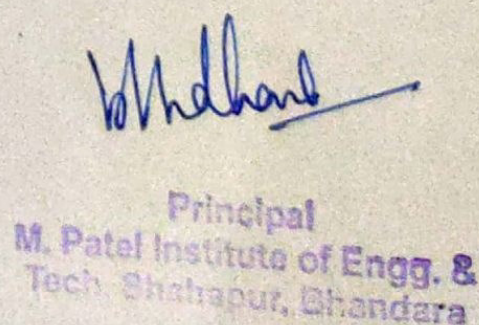 Principal
M. Patel Institute of Engg. &
Tech. Shahapur, Bhandara